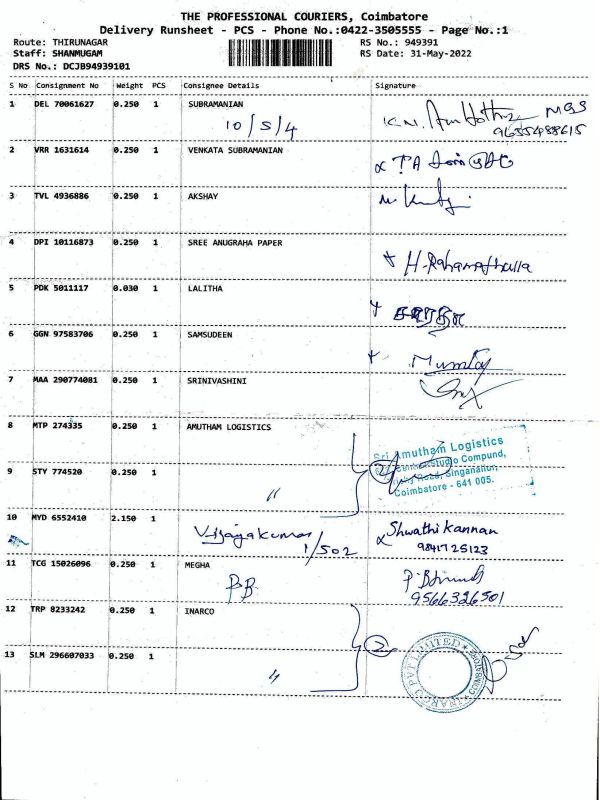 THE PROFESSIONAL COURIERS, Coimbatore
Delivery Runsheet - PCS - Phone No.:0422-3505555 - Page No.:1
Route: THIRUNAGAR RS No.: 949391
Staff: SHANMUGAM RS Date: 31-May-2022
DRS No.: DCJB94939101
S No Consignment No Weight PCS Consignee Details Signature
1 DEL 70061627 0.250 1 SUBRAMANIAN
10/5/4 9655488615
2 VRR 1631614 0.250 1 VENKATA SUBRAMANIAN
3 TVL 4936886 0.250 1 AKSHAY
4 DPI 10116873 0.250 1 SREE ANUGRAHA PAPER
H. Rahamathulla
5 PDK 5011117 0.030 1 LALITHA
6 GGN 97583706 0.250 1 SAMSUDEEN
Mumtaj
7 MAA 290774081 0.250 1 SRINIVASHINI
8 MTP 274335 0.250 1 AMUTHAM LOGISTICS
Sri Amutham Logistics
Studio Compund,
Road, Singanallur,
Coimbatore - 641 005.
9 STY 774520 0.250 1 〃
2
10 MYD 6552410 2.150 1 Vijayakumar Shwathi Kannan
1/502 9841725123
11 TCG 15026096 0.250 1 MEGHA
P.B 9566326501
12 TRP 8233242 0.250 1 INARCO
2
INARCO PVT LIMITED
13 SLM 296607033 0.250 1 〃